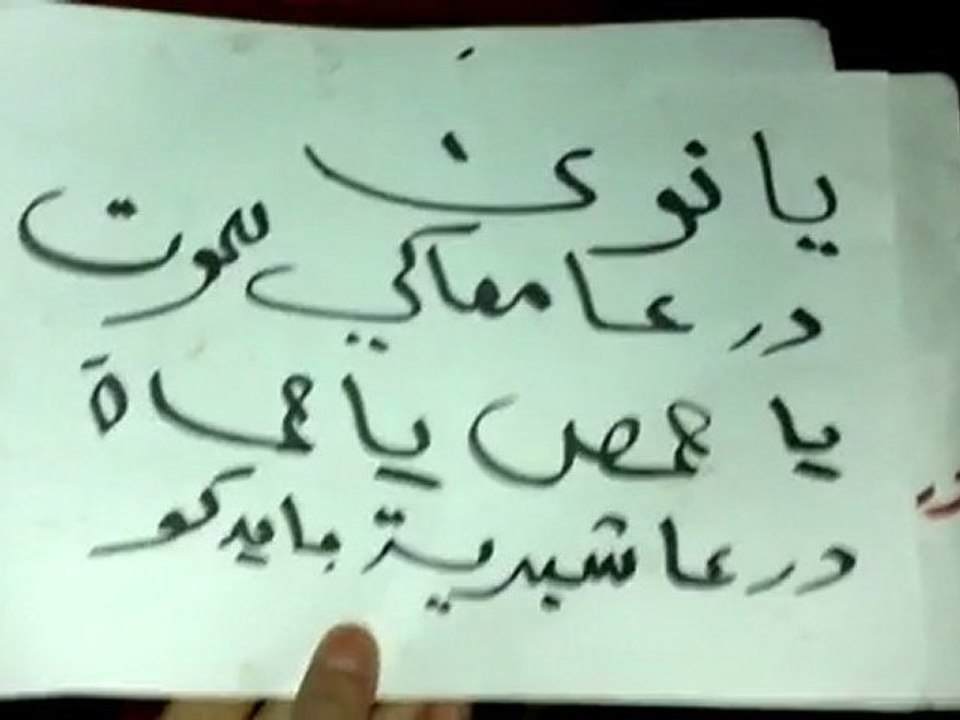 يا نوى
درعا معاكي للموت
يا حمص يا حماة
درعا بايدكو